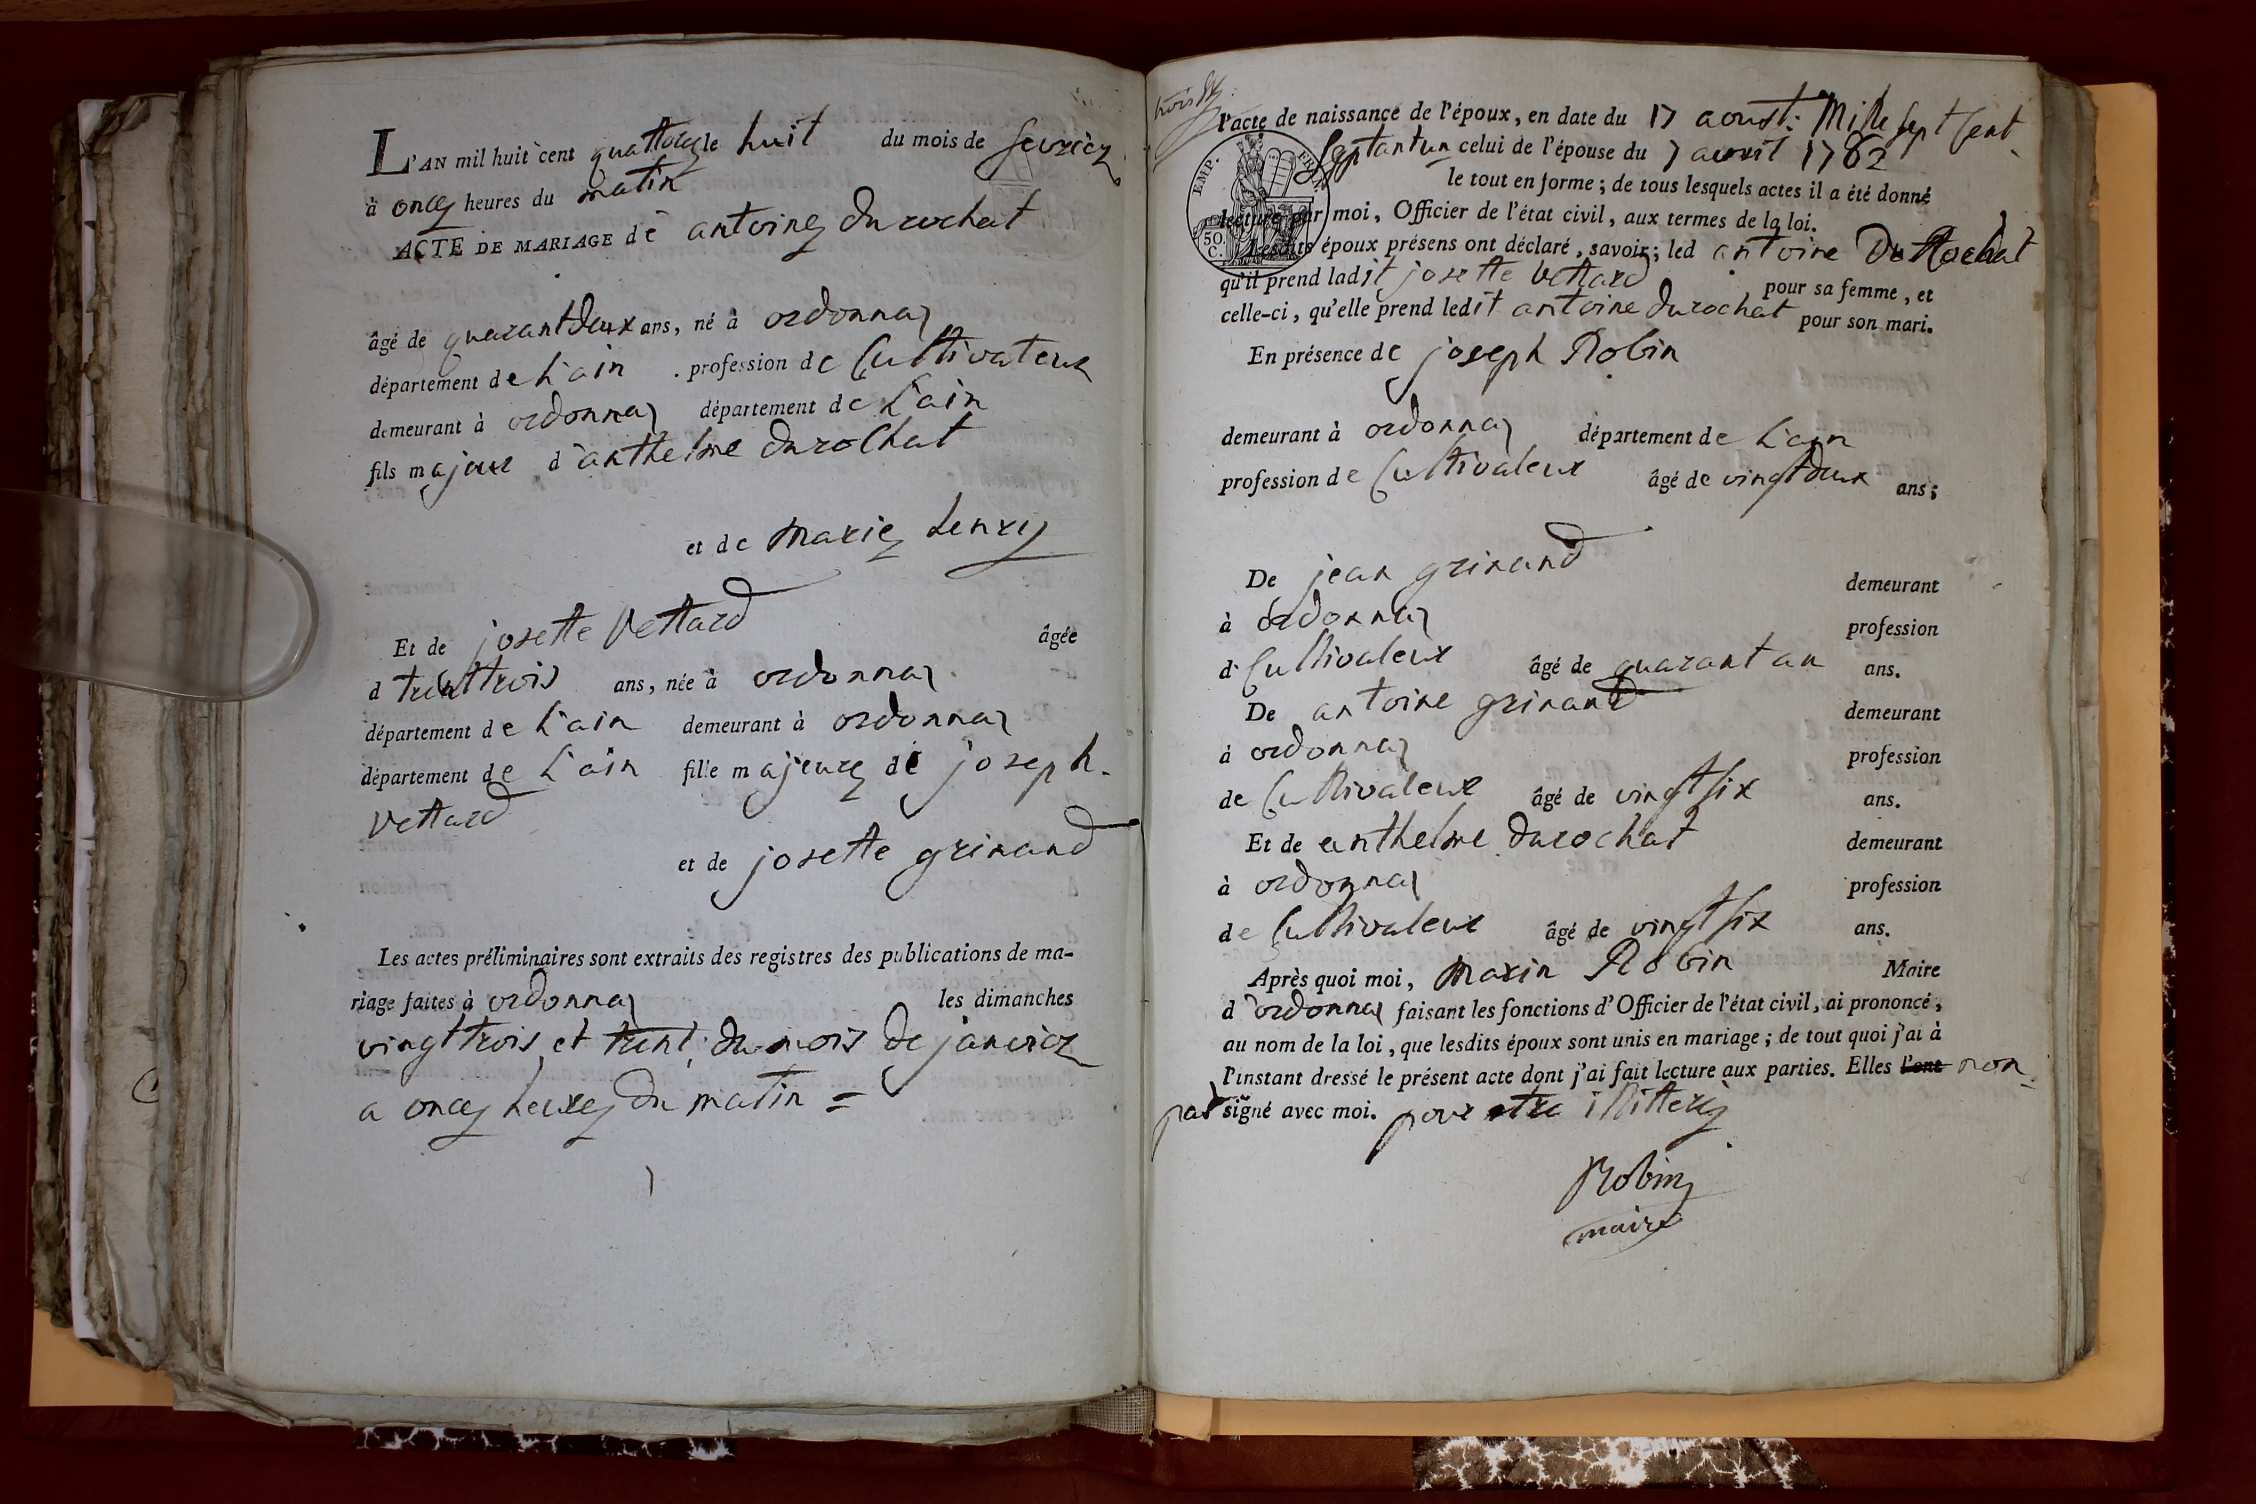 L'AN mil huit cent quatorze le huit du mois de fevrier
à onze heures du matin
ACTE DE MARIAGE de antoine durochat
âgé de quarantdeux ans, né à ordonnaz
département de L'ain profession de Cultivateur
demeurant à ordonnaz département de L'ain
fils majeur d'anthelme durochat
et de Marie henry
Et de josette Vettard âgée
d trenttrois ans, née à ordonnaz
département de L'ain demeurant à ordonnaz
département de L'ain fille majeure de joseph
Vettard
et de josette grinand
Les actes préliminaires sont extraits des registres des publications de ma-
riage faites à ordonnaz les dimanches
vingttrois et trent du mois de janvier
a onze heures du matin =
l'acte de naissance de l'époux, en date du 17 aoust Mille sept Cent
Septantun celui de l'épouse du 7 avril 1782
le tout en forme; de tous lesquels actes il a été donné
lecture par moi, Officier de l'état civil, aux termes de la loi.
Lesdits époux présens ont déclaré, savoir; led antoine Du Rochat
qu'il prend ladit josette Vettard pour sa femme, et
celle-ci, qu'elle prend ledit antoine durochat pour son mari.
En présence de joseph Robin
demeurant à ordonnaz département de L'ain
profession de Cultivateur âgé de vingtdeux ans;
De jean grinand demeurant
à ordonnaz profession
d. Cultivateur âgé de quarant an ans.
De antoine grinand demeurant
à ordonnaz profession
de Cultivateur âgé de vingtsix ans.
Et de anthelme durochat demeurant
à ordonnaz profession
de Cultivateur âgé de vingtsix ans.
Après quoi moi, Marin Robin Maire
d'ordonnaz faisant les fonctions d'Officier de l'état civil, ai prononcé,
au nom de la loi, que lesdits époux sont unis en mariage; de tout quoi j'ai à
l'instant dressé le présent acte dont j'ai fait lecture aux parties. Elles l'ont non
pas signé avec moi. pour etre illitere
Robin
maire
EMP. FRAN.
50.
C.